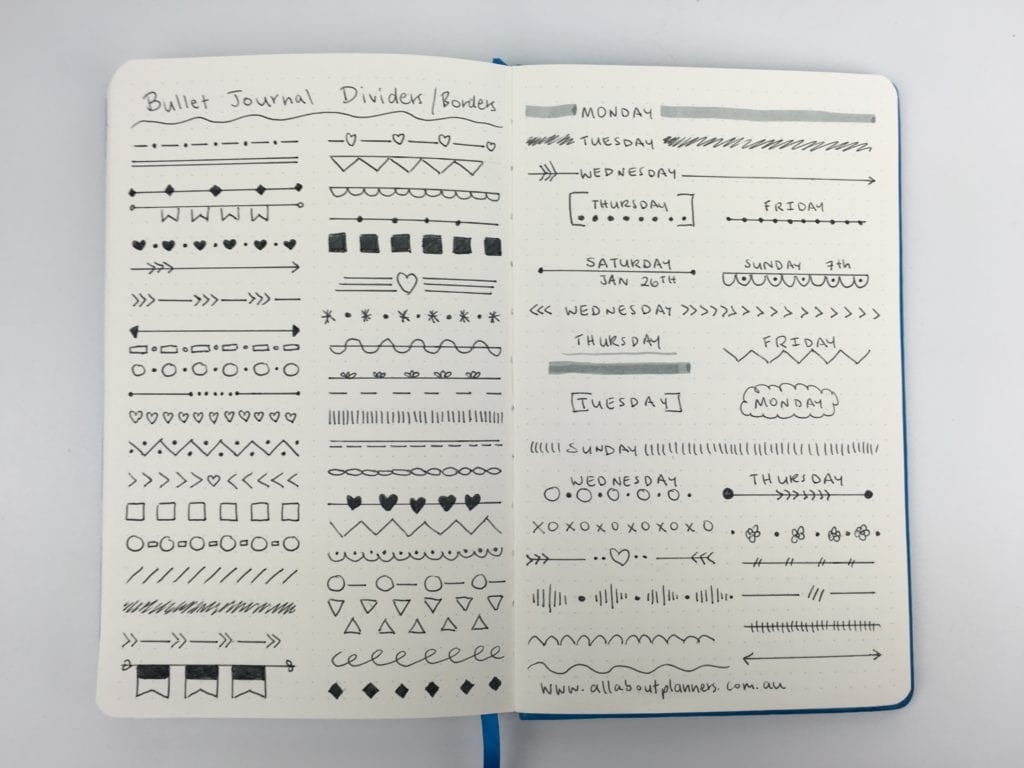 Bullet Journal Dividers/Borders
MONDAY
TUESDAY
WEDNESDAY
THURSDAY
FRIDAY
SATURDAY
JAN 26TH
SUNDAY 7th
WEDNESDAY
THURSDAY
FRIDAY
TUESDAY
MONDAY
SUNDAY
WEDNESDAY
THURSDAY
XOXOXOXOXOXO
www.allaboutplanners.com.au